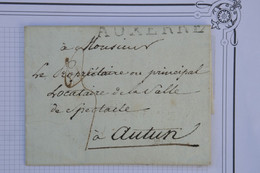 AUXERRE
à Monsieur
Le Propriétaire ou principal
Locataire de la Salle
de Spectacle
à Autun